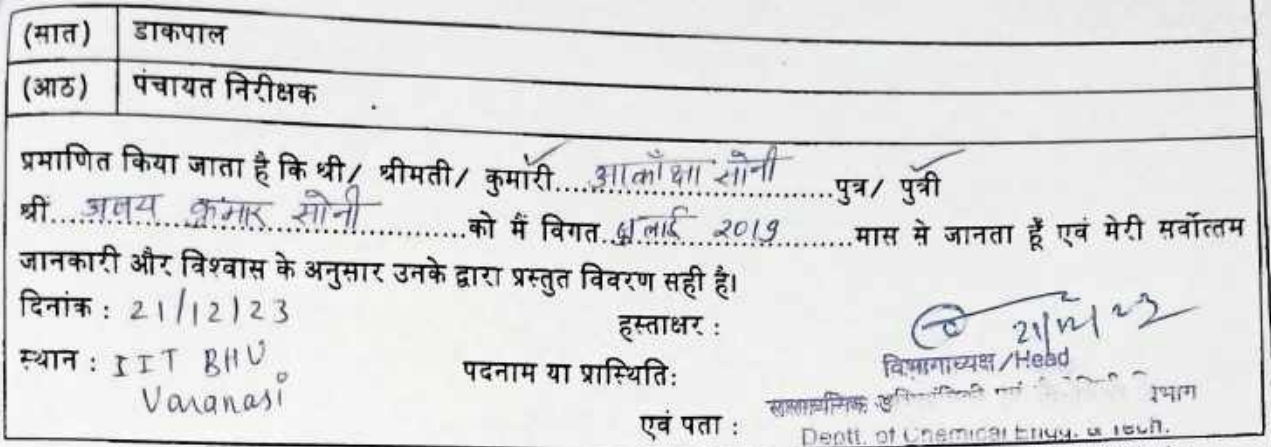 (सात) डाकपाल
(आठ) पंचायत निरीक्षक
प्रमाणित किया जाता है कि श्री/ श्रीमती/ कुमारी....आकाँक्षा सोनी....पुत्र/ पुत्री
श्री....अजय कुमार सोनी....को मैं विगत..जुलाई 2019....मास से जानता हूँ एवं मेरी सर्वोत्तम
जानकारी और विश्वास के अनुसार उनके द्वारा प्रस्तुत विवरण सही है।
दिनांक : 21/12/23
हस्ताक्षर : 21/12/23
स्थान : IIT BHU
Varanasi
पदनाम या प्रास्थिति: विभागाध्यक्ष/Head
एवं पता : Deptt. of Chemical Engg. & Tech.